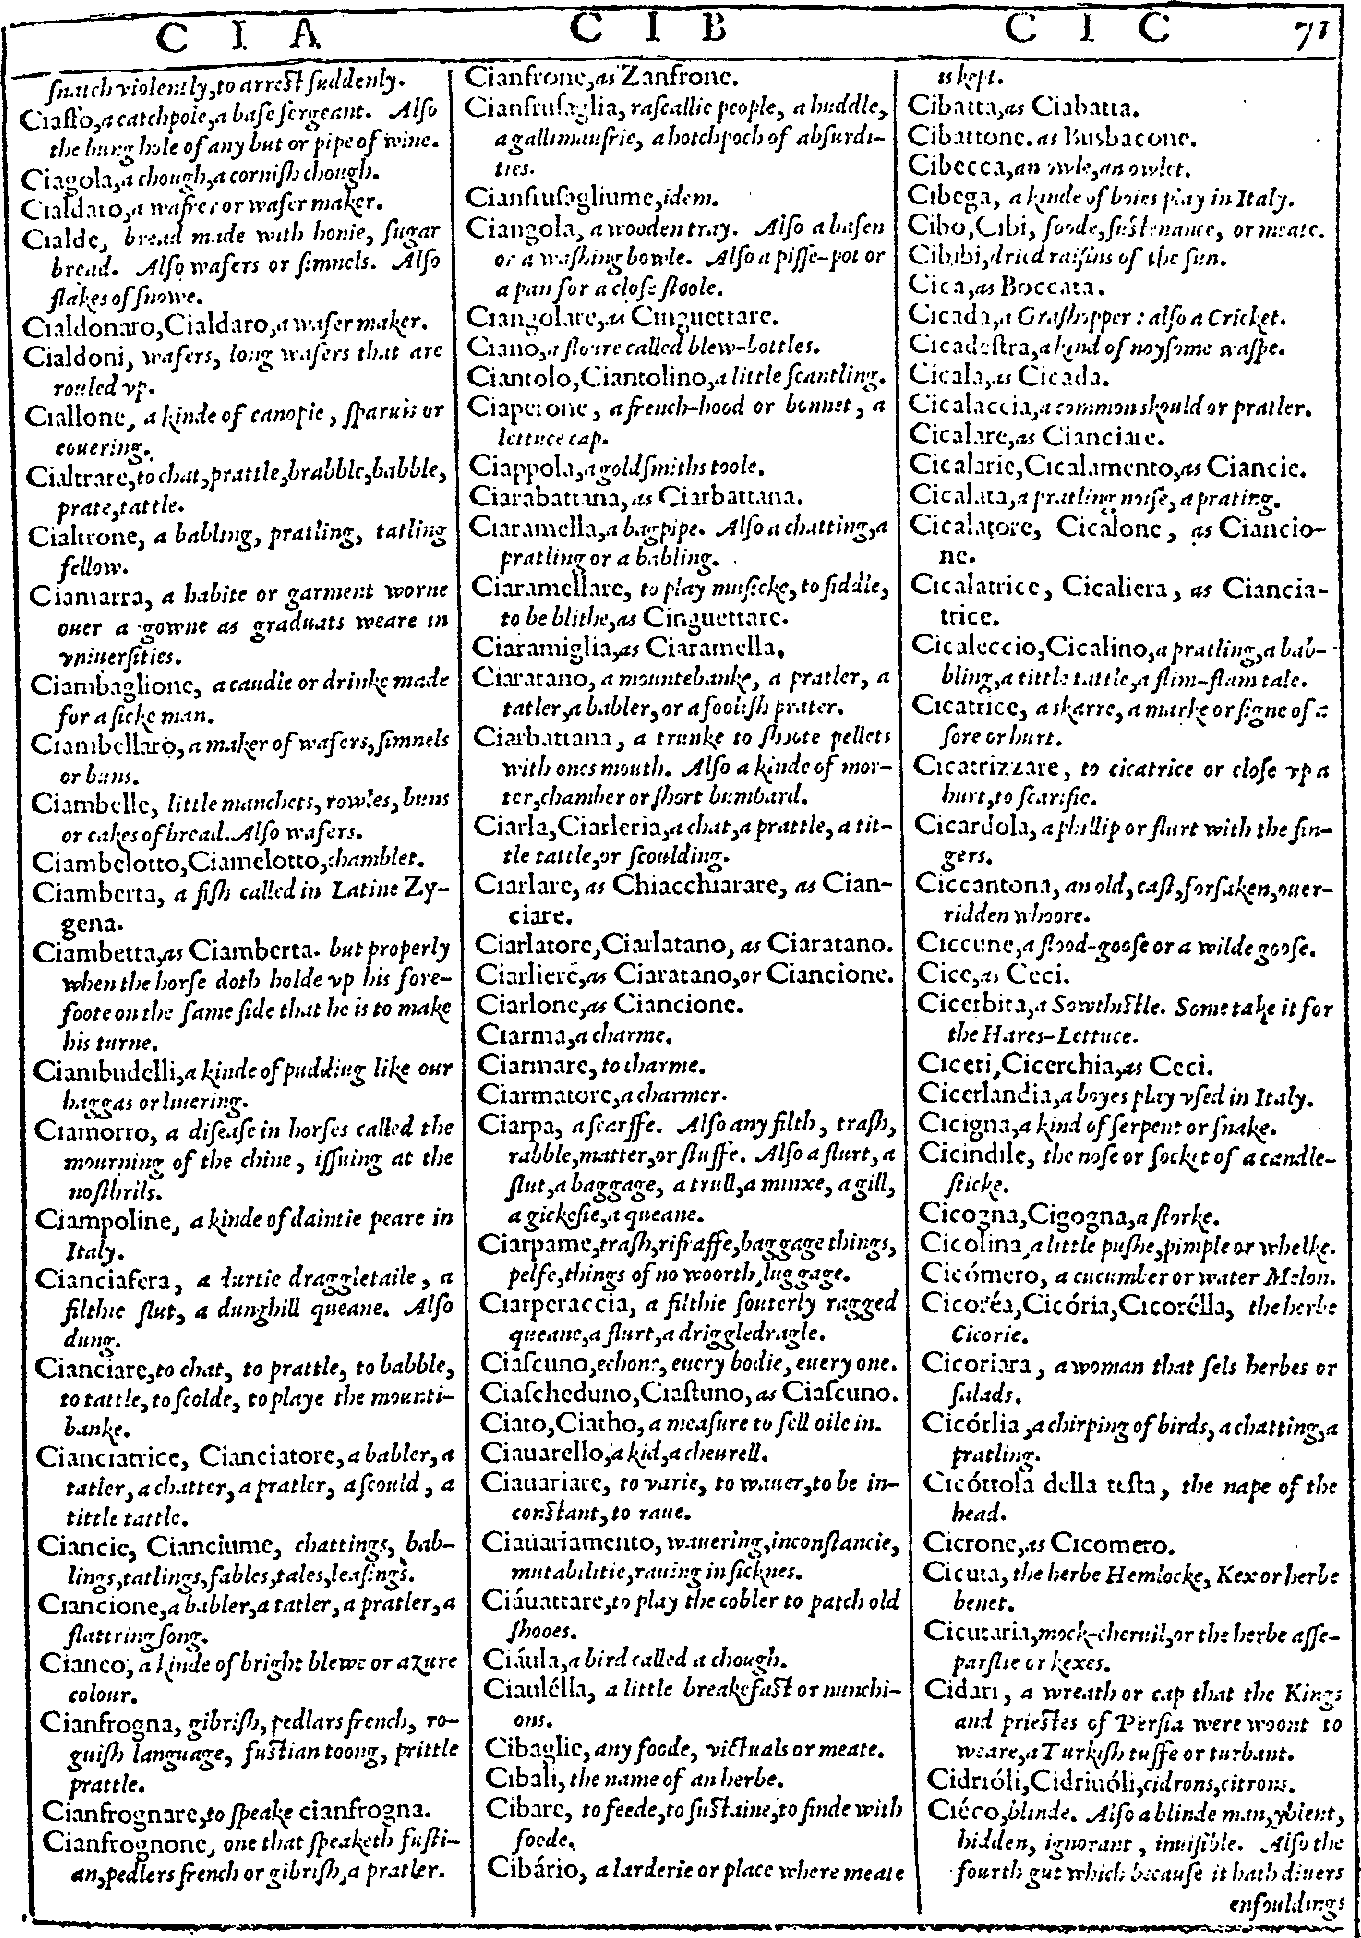 C I A
C I B
C I C 71
snatch violently, to arrest suddenly.
Ciaffo, a catchpole, a base sergeant. Also
the bung hole of any but or pipe of wine.
Ciagola, a chough, a cornish chough.
Cialdaro, a wafrer or wafer maker.
Cialde, bread made with honie, sugar
bread. Also wafers or simnels. Also
flakes of snowe.
Cialdonaro, Cialdaro, a wafer maker.
Cialdoni, wafers, long wafers that are
rouled vp.
Ciallone, a kinde of canopie, sparuis or
couering.
Cialtrare, to chat, prattle, brabble, babble,
prate, tattle.
Cialtrone, a babling, pratling, tatling
fellow.
Ciamarra, a habite or garment worne
ouer a gowne as graduats weare in
vniuersities.
Ciambaglione, a caudle or drinke made
for a sicke man.
Ciambellaro, a maker of wafers, simnels
or buns.
Ciambelle, little manchets, rowles, buns
or cakes of bread. Also wafers.
Ciambelotto, Ciamelotto, chamblet.
Ciamberta, a fish called in Latine Zy-
gena.
Ciambetta, as Ciamberta. but properly
when the horse doth holde vp his fore-
foote on the same side that he is to make
his turne.
Ciambudelli, a kinde of pudding like our
haggas or liuering.
Ciamorro, a disease in horses called the
mourning of the chine, issuing at the
nosthrils.
Ciampoline, a kinde of daintie peare in
Italy.
Cianciafera, a durtie draggletaile, a
filthie slut, a dunghill queane. Also
dung.
Cianciare, to chat, to prattle, to babble,
to tattle, to scolde, to playe the mounti-
banke.
Cianciatrice, Cianciatore, a babler, a
tatler, a chatter, a pratler, a scould, a
tittle tattle.
Ciancie, Cianciume, chattings, bab-
lings, tatlings, fables, tales, leasings.
Ciancione, a babler, a tatler, a pratler, a
flattring song.
Cianco, a kinde of bright blewe or azure
colour.
Cianfrogna, gibrish, pedlars french, ro-
guish language, fustian toong, prittle
prattle.
Cianfrognare, to speake cianfrogna.
Cianfrognone, one that speaketh fusti-
an, pedlers french or gibrish, a pratler.
Cianfrone, as Zanfrone.
Cianfrusaglia, rascallie people, a huddle,
a gallimaufrie, a hotchpoch of absurdi-
ties.
Cianfrusagliume, idem.
Ciangola, a wooden tray. Also a basen
or a washing bowle. Also a pisse-pot or
a pan for a close stoole.
Ciangolare, as Cinguettare.
Ciano, a floure called blew-bottles.
Ciantolo, Ciantolino, a little scantling.
Ciaperone, a french-hood or bonnet, a
lettuce cap.
Ciappola, a goldsmiths toole.
Ciarabattana, as Ciarbattana.
Ciaramella, a bagpipe. Also a chatting, a
pratling or a babling.
Ciaramellare, to play musicke, to fiddle,
to be blithe, as Cinguettare.
Ciaramiglia, as Ciaramella,
Ciaratano, a mountebanke, a pratler, a
tatler, a babler, or a foolish prater.
Ciarbattana, a trunke to shoote pellets
with ones mouth. Also a kinde of mor-
ter, chamber or short bumbard.
Ciarla, Ciarleria, a chat, a prattle, a tit-
tle tattle, or scoulding.
Ciarlare, as Chiacchiarare, as Cian-
ciare.
Ciarlatore, Ciarlatano, as Ciaratano.
Ciarliere, as Ciaratano, or Ciancione.
Ciarlone, as Ciancione.
Ciarma, a charme.
Ciarmare, to charme.
Ciarmatore, a charmer.
Ciarpa, a scarffe. Also any filth, trash,
rabble, matter, or stuffe. Also a flurt, a
slut, a baggage, a trull, a minxe, a gill,
a gickesie, a queane.
Ciarpame, trash, rifraffe, baggage things,
pelfe, things of no woorth, luggage.
Ciarperaccia, a filthie souterly ragged
queane, a flurt, a driggledragle.
Ciascuno, echone, euery bodie, euery one.
Ciascheduno, Ciastuno, as Ciascuno.
Ciato, Ciatho, a measure to sell oile in.
Ciauarello, a kid, a cheurell.
Ciauariare, to varie, to wauer, to be in-
constant, to raue.
Ciauariamento, wauering, inconstancie,
mutabilitie, rauing in sicknes.
Ciáuattare, to play the cobler to patch old
shooes.
Ciáula, a bird called a chough.
Ciauélla, a little breakefast or nunchi-
ons.
Cibaglie, any foode, victuals or meate.
Cibali, the name of an herbe.
Cibare, to feede, to sustaine, to finde with
foode.
Cibário, a larderie or place where meate
is kept.
Cibatta, as Ciabatta.
Cibattone. as Busbacone.
Cibecca, an owle, an owlet.
Cibega, a kinde of boies play in Italy.
Cibo, Cibi, foode, sustenance, or meate.
Cibibi, dried raisins of the sun.
Cica, as Boccata.
Cicada, a Grashopper: also a Cricket.
Cicadestra, a kind of noysome waspe.
Cicala, as Cicada.
Cicalaccia, a common skould or pratler.
Cicalare, as Cianciare.
Cicalarie, Cicalamento, as Ciancie.
Cicalata, a pratling noise, a prating.
Cicalatore, Cicalone, as Ciancio-
ne.
Cicalatrice, Cicaliera, as Ciancia-
trice.
Cicaleccio, Cicalino, a pratling, a bab-
bling, a tittle tattle, a flim-flam tale.
Cicatrice, a skarre, a marke or signe of a
sore or hurt.
Cicatrizzare, to cicatrice or close vp a
hurt, to scarifie.
Cicardola, a phillip or flurt with the fin-
gers.
Ciccantona, an old, cast, forsaken, ouer-
ridden whoore.
Ciccune, a flood-goose or a wilde goose.
Cice, as Ceci.
Cicerbita, a Sowthistle. Some take it for
the Hares-Lettuce.
Ciceri, Cicerchia, as Ceci.
Cicerlandia, a boyes play vsed in Italy.
Cicigna, a kind of serpent or snake.
Cicindile, the nose or socket of a candle-
sticke.
Cicogna, Cigogna, a storke.
Cicolina, a little pushe, pimple or whelke.
Cicómero, a cucumber or water Melon.
Cicoréa, Cicória, Cicorélla, the herbe
Cicorie.
Cicoriara, a woman that sels herbes or
salads.
Cicórlia, a chirping of birds, a chatting, a
pratling.
Cicóttola della testa, the nape of the
head.
Cicrone, as Cicomero.
Cicuta, the herbe Hemlocke, Kex or herbe
benet.
Cicutaria, mock-cheruil, or the herbe asse-
parslie or kexes.
Cidari, a wreath or cap that the Kings
and priestes of Persia were woont to
weare, a Turkish tuffe or turbant.
Cidrióli, Cidriuóli, cidrons, citrons.
Ciéco, blinde. Also a blinde man, yblent,
hidden, ignorant, inuisible. Also the
fourth gut which because it hath diuers
enfouldings